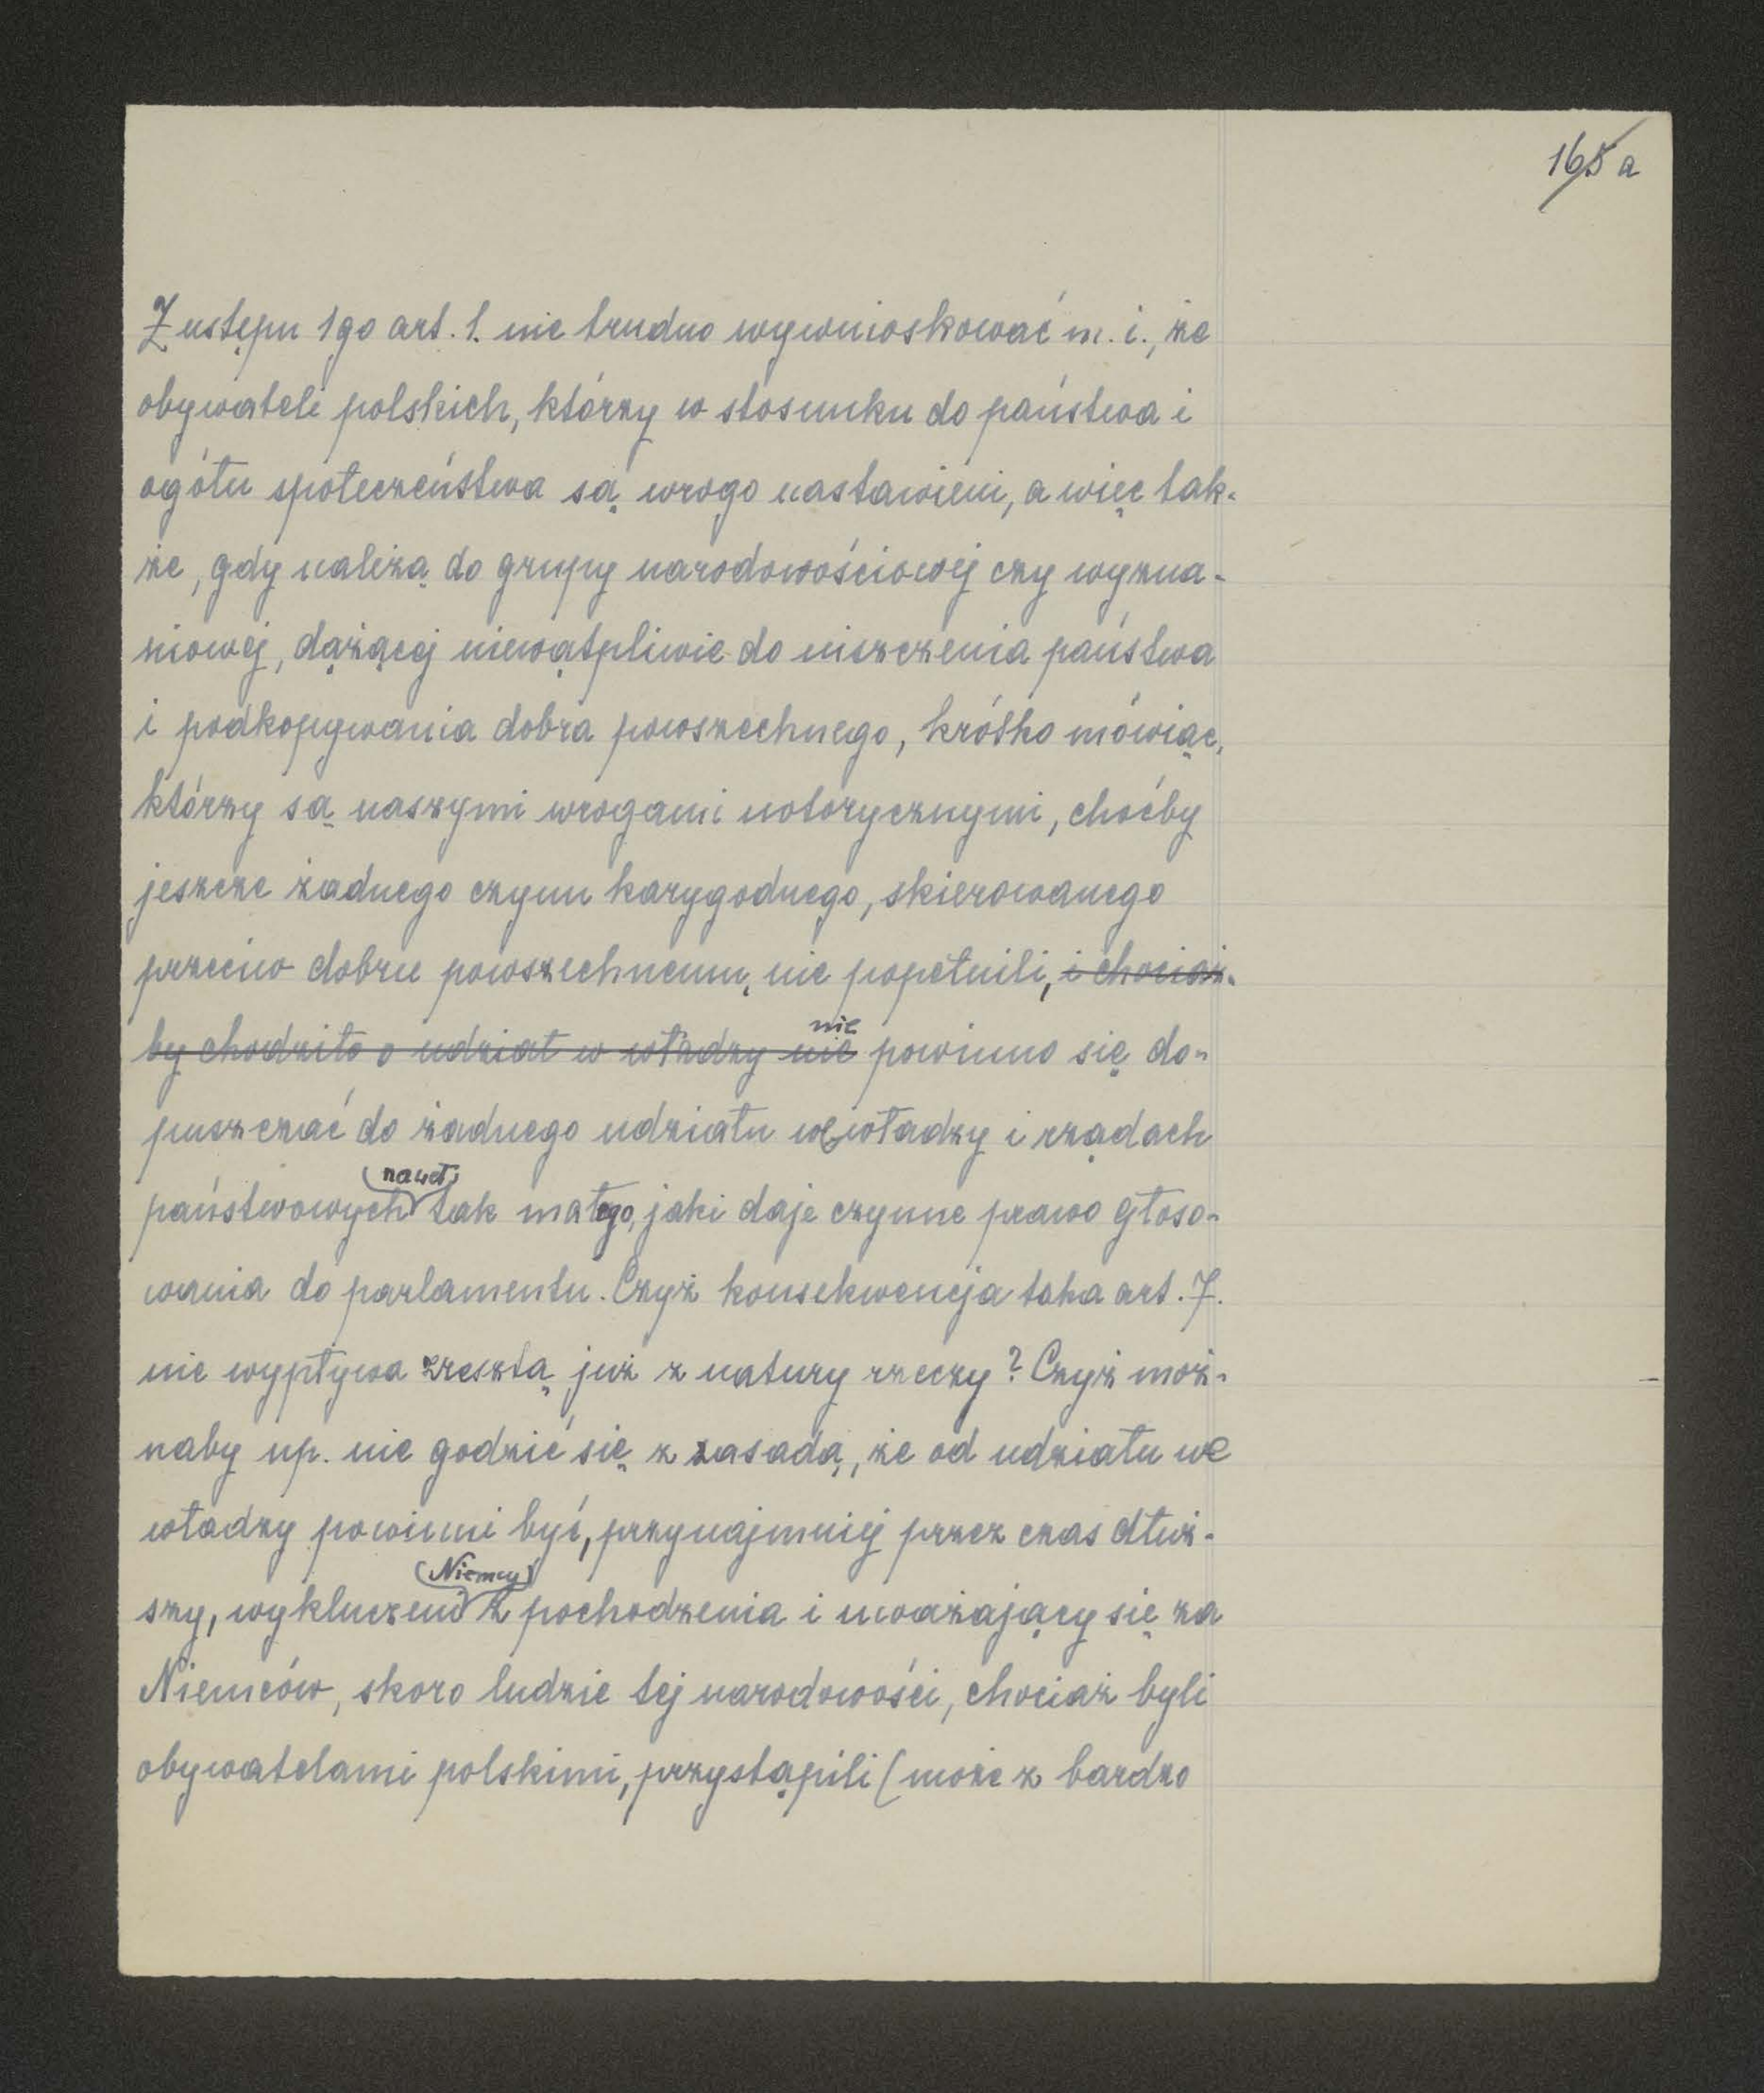 165 a
Z ustępu 1go art. 1. nie trudno wywnioskować m. i., że
obywateli polskich, którzy w stosunku do państwa i
ogółu społeczeństwa są wrogo nastawieni, a więc tak-
że, gdy należą do grupy narodowościowej czy wyzna-
niowej, dążącej niewątpliwie do niszczenia państwa
i podkopywania dobra powszechnego, krótko mówiąc,
którzy są naszymi wrogami notorycznymi, choćby
jeszcze żadnego czynu karygodnego, skierowanego
przeciw dobru powszechnemu, nie popełnili, i chociaż-
nie
by chodziło o udział w władzy nie powinno się do-
puszczać do żadnego udziału we władzy i rządach
nawet
państwowych tak małego, jaki daje czynne prawo głoso-
wania do parlamentu. Czyż konsekwencja taka art. 7.
nie wypływa zresztą już z natury rzeczy? Czyż moż-
naby np. nie godzić się z zasadą, że od udziału we
władzy powinni być, przynajmniej przez czas dłuż-
(Niemcy)
szy, wykluczeni z pochodzenia i uważający się za
Niemców, skoro ludzie tej narodowości, chociaż byli
obywatelami polskimi, przystąpili (może z bardzo